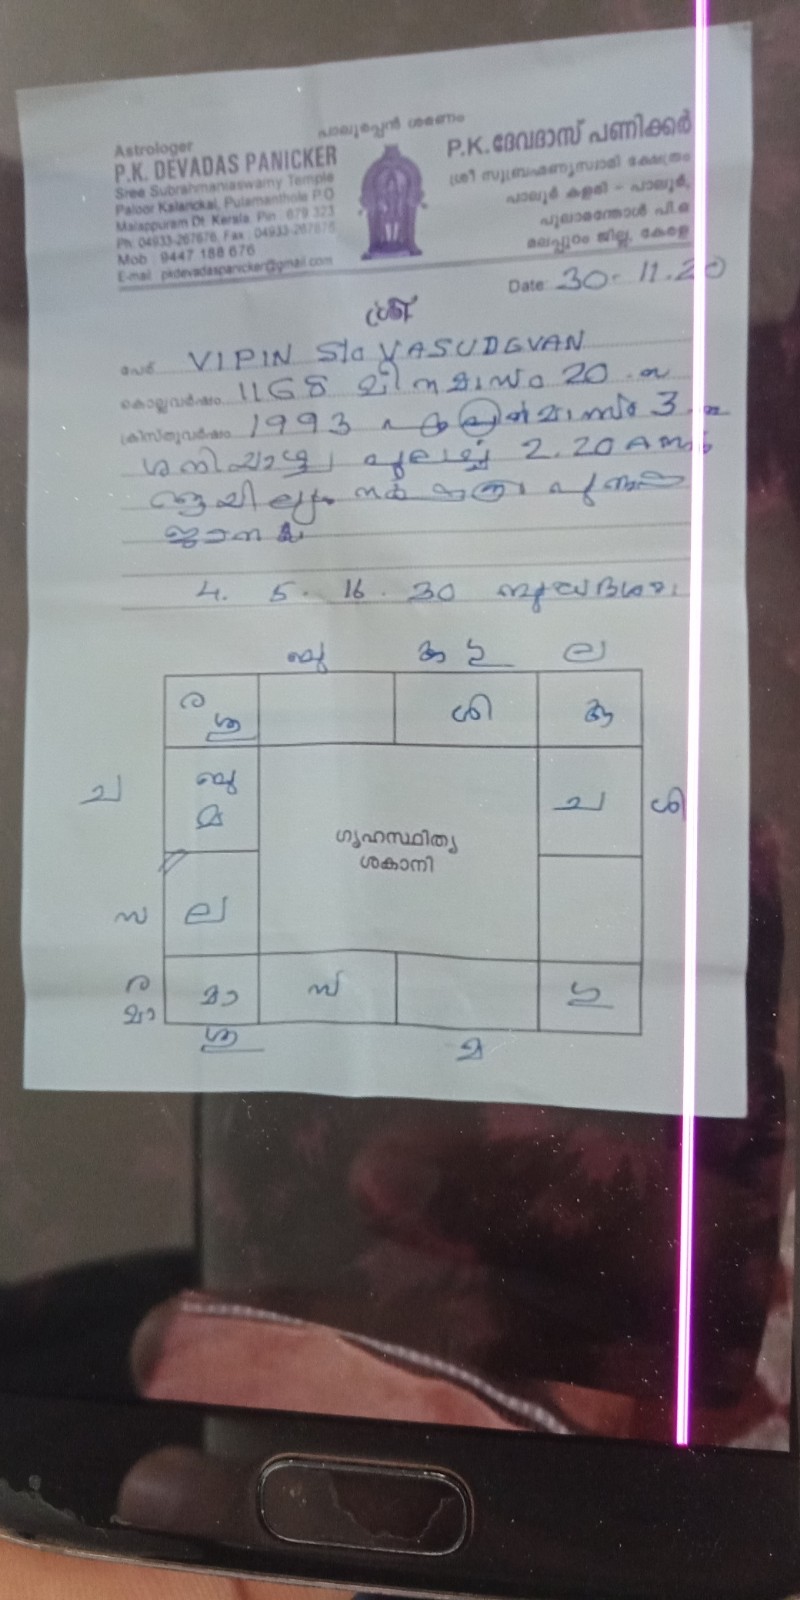 പാലൂരപ്പൻ ശരണം
Astrologer
P.K. DEVADAS PANICKER
Sree Subrahmaniaswamy Temple
Paloor Kalarickal, Pulamanthole P.O
Malappuram Dt. Kerala. Pin : 679 323
Ph: 04933-267676, Fax : 04933-267676
Mob : 9447 188 676
E-mail : pkdevadaspanicker@gmail.com
P.K.ദേവദാസ് പണിക്കർ
ശ്രീ സുബ്രഹ്മണ്യസ്വാമി ക്ഷേത്രം
പാലൂർ കളരി - പാലൂർ,
പുലാമന്തോൾ പി.ഒ
മലപ്പുറം ജില്ല, കേരള
Date: 30-11.20
ശ്രീ
പേര് VIPIN S/o VASUDEVAN
കൊല്ലവർഷം 1168 മീനമാസം 20
ക്രിസ്തുവർഷം 1993 ഏപ്രിൽമാസം 3
ശനിയാഴ്ച പുലർച്ച 2.20 AM
ആയില്യം നക്ഷത്രം
ജനനം
4. 5. 16. 30 ബുധദശ
ബു കു ഗു ല
ര ശു ശി കു
ച ബു മ ച ശി
ഗൃഹസ്ഥിത്യ
ശകാനി
സ ല
ര മാ മാ സ ഗു
ശു മ